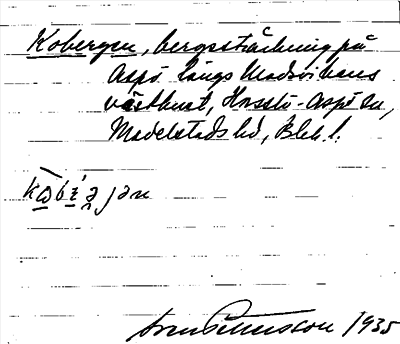 Kobergen, bergssträckning på
Aspö längs Madvikens
västkust, Hasslö-Aspö sn,
Medelstads hd, Blek. l.
1935